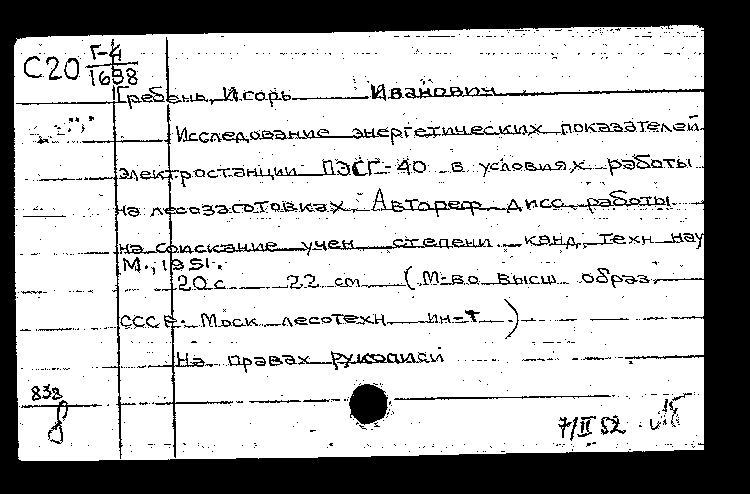 С20 Г-4
1698
Гребень, Игорь Иванович
Исследование энергетических показателей
электростанции ПЭСГ-40 в условиях работы
на лесозаготовках. Автореф. дисс. работы
на соискание учен. степени канд. техн нау
М., 1951.
20 с 22 cm (М-во высш образ.
СССР. Моск лесотехн ин-т)
На правах рукописи
832
8
7/II 52